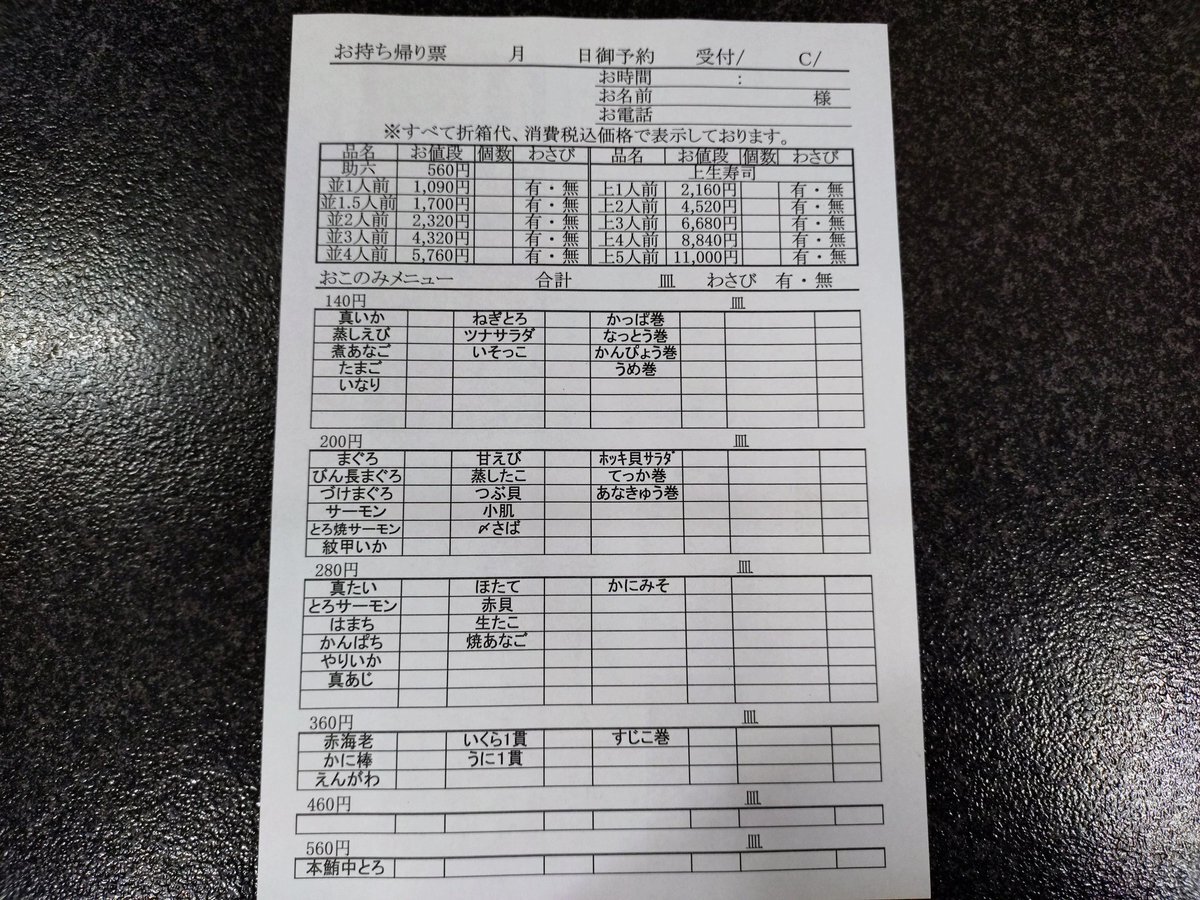 お持ち帰り票　月　日御予約　受付/　C/
お時間　:
お名前　様
お電話
※すべて折箱代、消費税込価格で表示しております。
品名　お値段　個数　わさび　品名　お値段　個数　わさび
助六　560円　上生寿司
並1人前　1,090円　有・無　上1人前　2,160円　有・無
並1.5人前　1,700円　有・無　上2人前　4,520円　有・無
並2人前　2,320円　有・無　上3人前　6,680円　有・無
並3人前　4,320円　有・無　上4人前　8,840円　有・無
並4人前　5,760円　有・無　上5人前　11,000円　有・無
おこのみメニュー　合計　皿　わさび　有・無
140円　皿
真いか　ねぎとろ　かっぱ巻
蒸しえび　ツナサラダ　なっとう巻
煮あなご　いそっこ　かんぴょう巻
たまご　うめ巻
いなり
200円　皿
まぐろ　甘えび　ホッキ貝サラダ
びん長まぐろ　蒸したこ　てっか巻
づけまぐろ　つぶ貝　あなきゅう巻
サーモン　小肌
とろ焼サーモン　〆さば
紋甲いか
280円　皿
真たい　ほたて　かにみそ
とろサーモン　赤貝
はまち　生たこ
かんぱち　焼あなご
やりいか
真あじ
360円　皿
赤海老　いくら1貫　すじこ巻
かに棒　うに1貫
えんがわ
460円　皿
560円　皿
本鮪中とろ